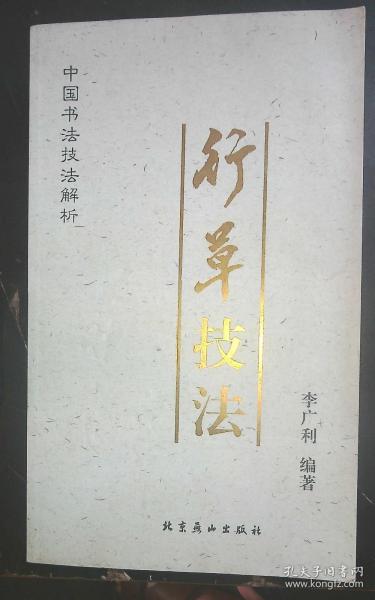 中国书法技法解析
行草技法
李广利 编著
北京燕山出版社
孔夫子旧书网
www.kongfz.com